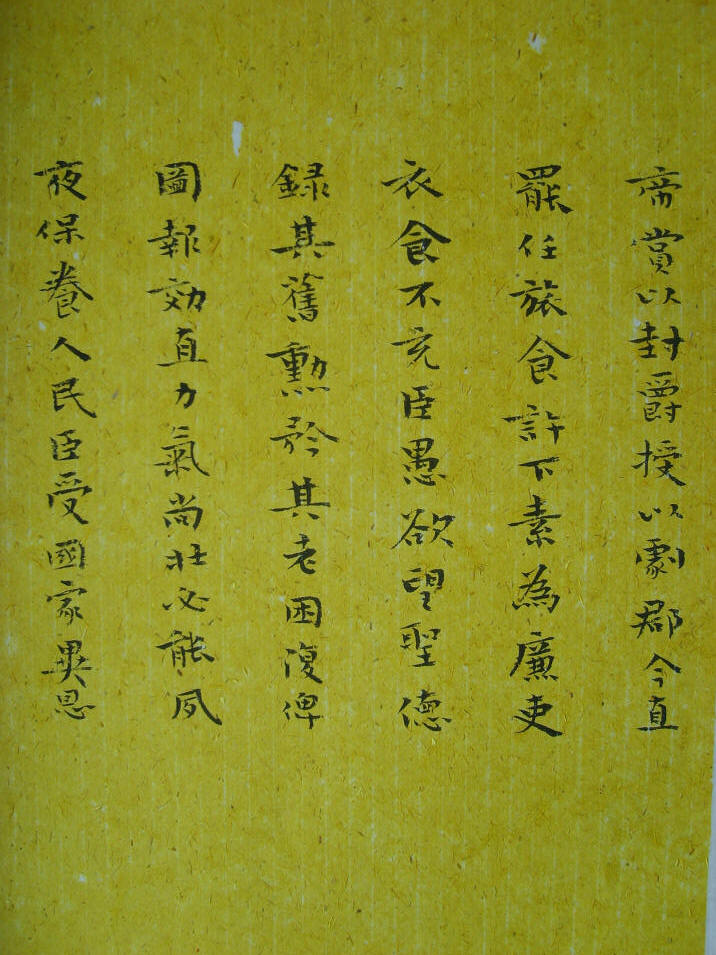 帝賞以封爵授以劇郡今直
罷任旅食許下素為廉吏
衣食不充臣愚欲望聖德
録其舊勲矜其老困復俾
圖報効直力氣尚壮必能夙
夜保養人民臣受國家異恩